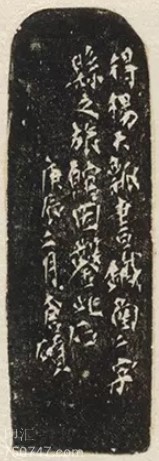 得楊大瓢書鐵函二字
縣之旅館因鑿此石
庚辰二月倉碩
760747.com